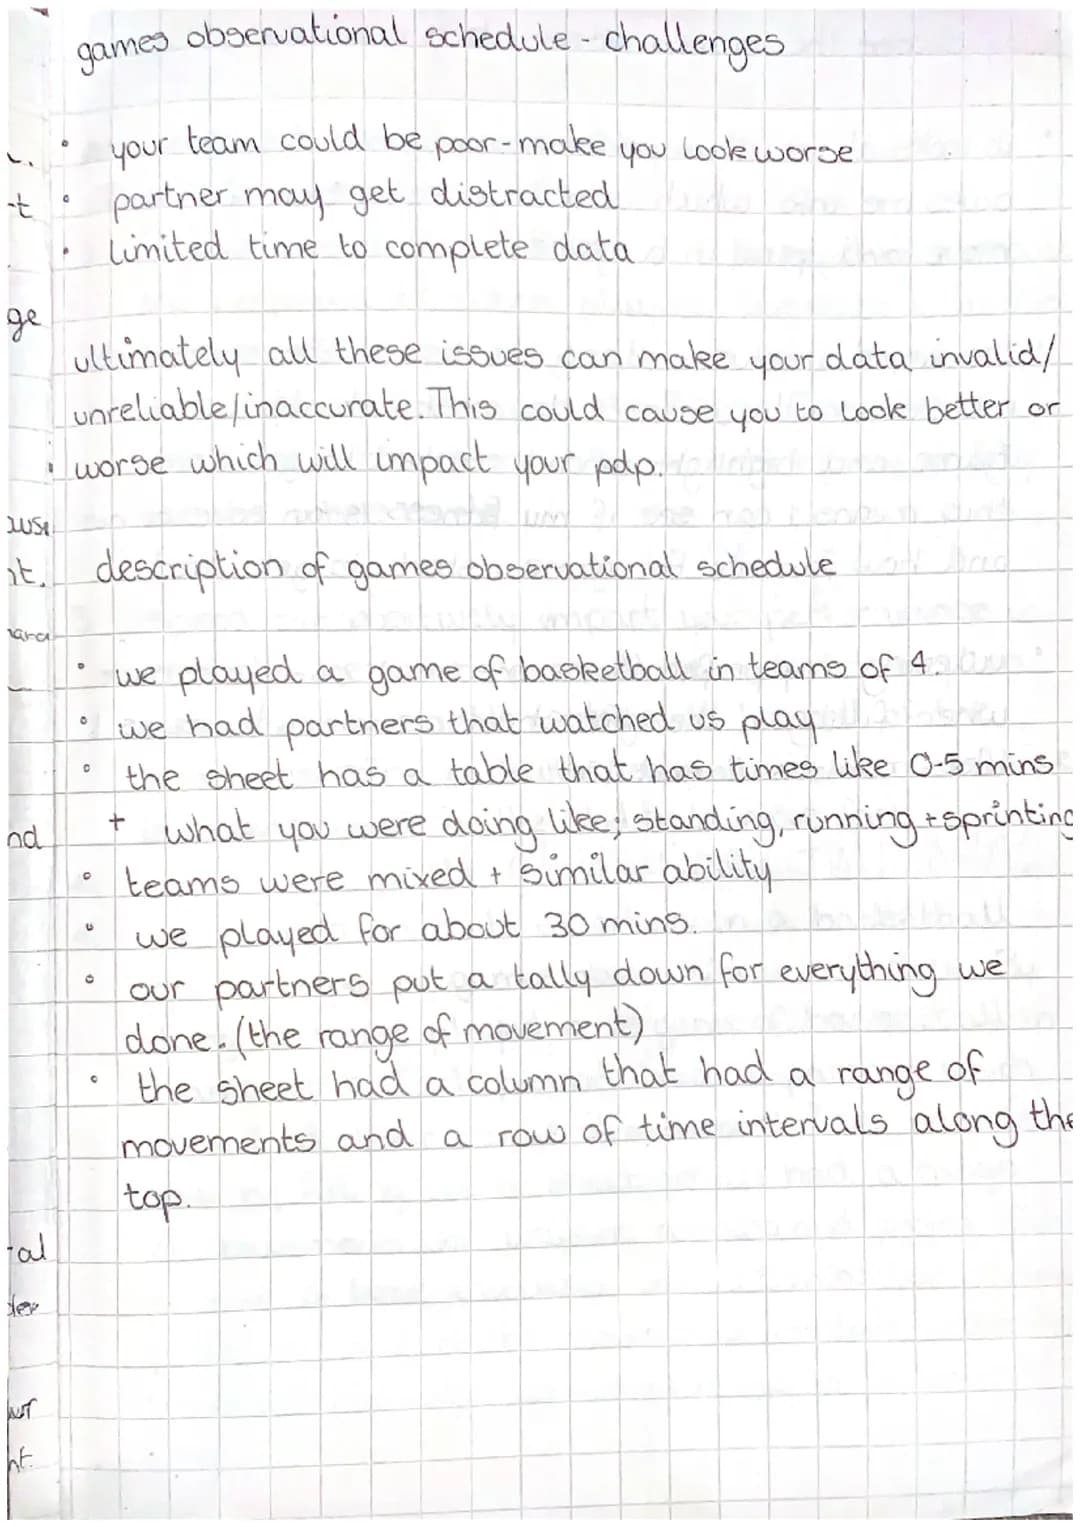 games observational schedule - challenges
• your team could be poor - make you look worse
• partner may get distracted
• limited time to complete data
ultimately all these issues can make your data invalid/
unreliable/inaccurate. This could cause you to look better or
worse which will impact your pdp.
description of games observational schedule
• we played a game of basketball in teams of 4.
• we had partners that watched us play
• the sheet has a table that has times like 0-5 mins
+ what you were doing like; standing, running + sprinting
• teams were mixed + similar ability
• we played for about 30 mins.
• our partners put a tally down for everything we
done. (the range of movement)
• the sheet had a column that had a range of
movements and a row of time intervals along the
top.